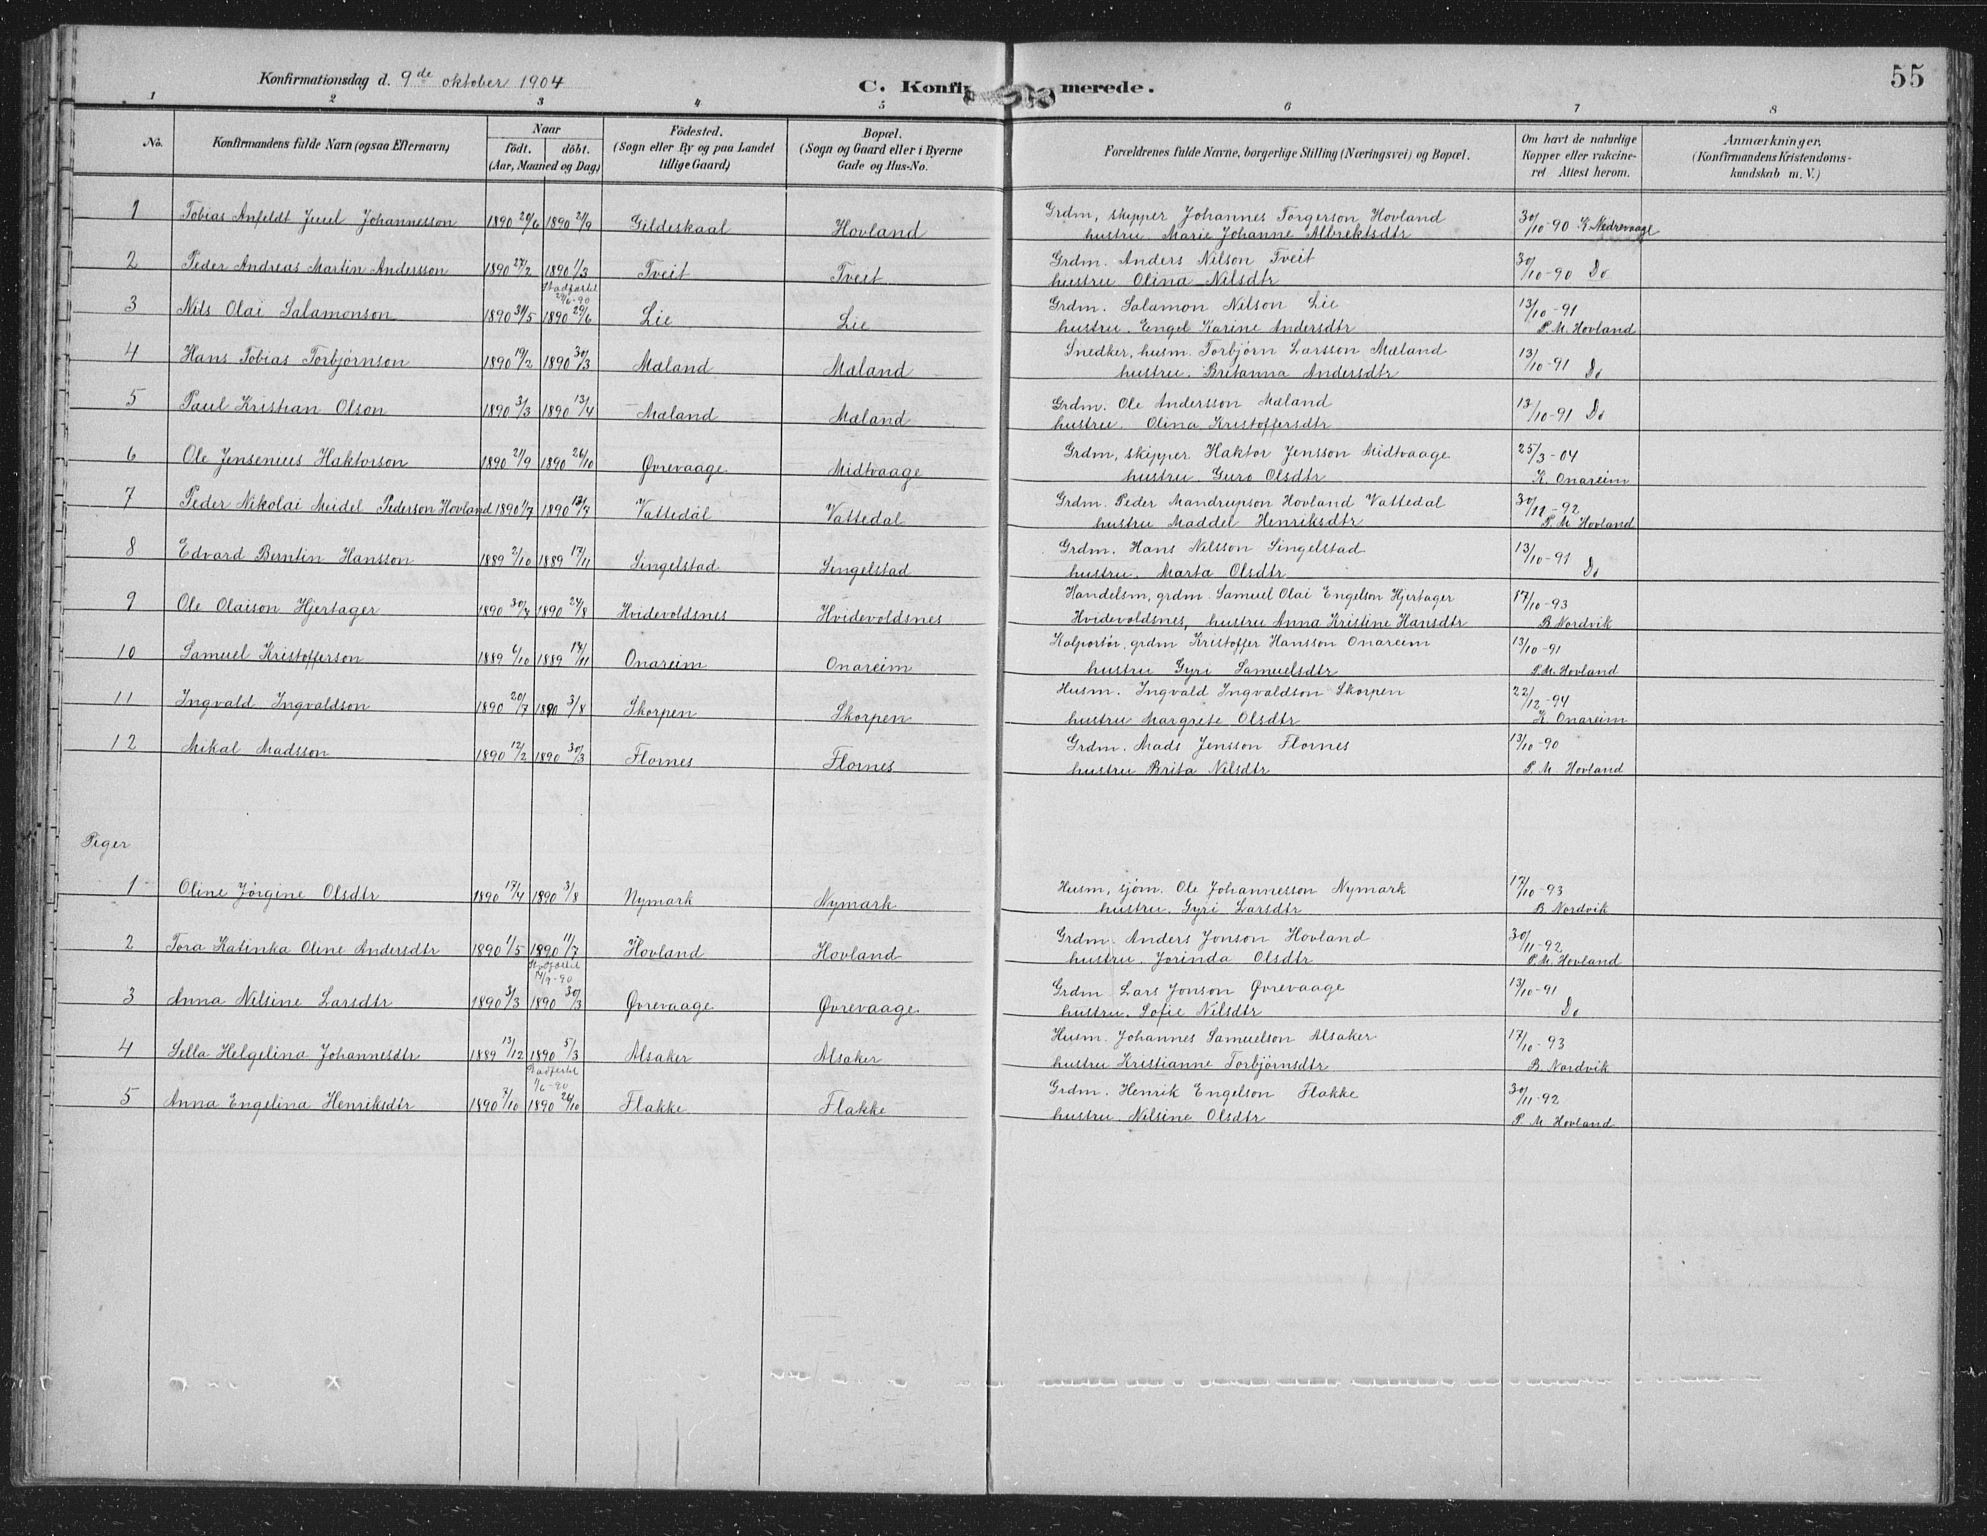 Konfirmationsdag d. 9de oktober 1904
C. Konfirmerede.
55
1 2 3 4 5 6 7 8
No.
Konfirmandens fulde Navn (ogsaa Efternavn)
Naar
født. døbt.
(Aar, Maaned og Dag)
Födested.
(Sogn eller By og paa Landet
tillige Gaard)
Bopæl.
(Sogn og Gaard eller i Byerne
Gade og Hus-No.
Forældrenes fulde Navne, borgerlige Stilling (Næringsvei) og Bopæl.
Om havt de naturlige
Kopper eller vakcine-
ret Attest herom.
Anmærkninger,
(Konfirmandens Kristendoms-
kundskab m. V.)
1 Tobias Anfeldt Juul Johannesson 1890 1890 Gildeskaal Hovland Grdm, skipper Johannes Torgerson Hovland 30/10-90 K. Nedrevaage
hustru Marie Johanne Albrektsdtr
2 Peder Andreas Martin Andersson 1890 27/2 1890 1/3 Tveit Tveit Grdm. Anders Nilson Tveit 30/10-90 Do
hustru Olina Nilsdtr
3 Nils Olai Salamonson 1890 31/5 1890 29/6 Lie Lie Grdm. Salamon Nilson Lie 13/10-91
hustru. Engel Karine Andersdtr P. M. Hovland
4 Hans Tobias Torbjørnson 1890 19/2 1890 30/3 Mæland Mæland Snedker, husm. Torbjørn Larsson Mæland 13/10-91 Do
hustru. Britanna Andersdtr
5 Paul Kristian Olson 1890 3/3 1890 13/4 Mæland Mæland Grdm. Ole Andersson Mæland 13/10-91 Do
hustru. Olina Kristoffersdtr
6 Ole Jensenius Haktorson 1890 21/9 1890 26/10 Øvrevaage Midtvaage Grdm, skipper Haktor Jensson Midtvaage 25/3-04
hustru. Guro Olsdtr K. Onareim
7 Peder Nikolai Meidel Pederson Hovland 1890 1/7 1890 13/7 Vattedal Vattedal Grdm. Peder Mandrupson Hovland Vattedal 30/11-92
hustru Maddel Henriksdtr P. M. Hovland
8 Edvard Berntin Hansson 1889 2/10 1889 17/11 Singelstad Singelstad Grdm. Hans Nilsson Singelstad 13/10-91
hustru. Marta Olsdtr Do
9 Ole Olaison Hjertager 1890 30/7 1890 24/8 Hvidevoldsnes Hvidevoldsnes Handelsm, grdm. Samuel Olai Engelson Hjertager 17/10-93
Hvidevoldsnes, hustru Anna Kristine Hansdtr B. Nordvik
10 Samuel Kristofferson 1889 6/10 1889 17/11 Onareim Onareim Kolportør, grdm Kristoffer Hansson Onareim 13/10-91
hustru Gyri Samuelsdtr P.M. Hovland
11 Ingvald Ingvaldson 1890 20/7 1890 3/8 Skorpen Skorpen Husm. Ingvald Ingvaldson Skorpen 22/12-94
hustru Margrete Olsdtr K. Onareim
12 Mikal Madsson 1890 12/2 1890 30/3 Flornes Flornes Grdm. Mads Jensson Flornes 13/10-90
hustru Brita Nilsdtr P. M. Hovland
Piger
1 Oline Jørgine Olsdtr 1890 17/4 1890 3/8 Nymark Nymark Husm, sjøm. Ole Johannesson Nymark 17/10-93
hustru. Gyri Larsdtr B. Nordvik
2 Tora Katinka Oline Andersdtr 1890 1/5 1890 11/7 Hovland Hovland Grdm. Anders Jonson Hovland 30/11-92
hustru. Jorinda Olsdtr P.M. Hovland
3 Anna Nilsine Larsdtr 1890 3/3 1890 30/3 Øvrevaage Øvrevaage Grdm. Lars Jonson Øvrevaage 13/10-91
hustru. Sofie Nilsdtr Do
4 Sella Helgelina Johannesdtr 1889 13/12 1890 5/3 Alsaker Alsaker Husm. Johannes Samuelson Alsaker 17/10-93
hustru Kristianne Torbjørnsdtr B. Nordvik
5 Anna Engelina Henriksdtr 1890 7/10 1890 26/10 Flakke Flakke Grdm. Henrik Engelson Flakke 30/11-92
hustru. Nilsine Olsdtr P. M Hovland